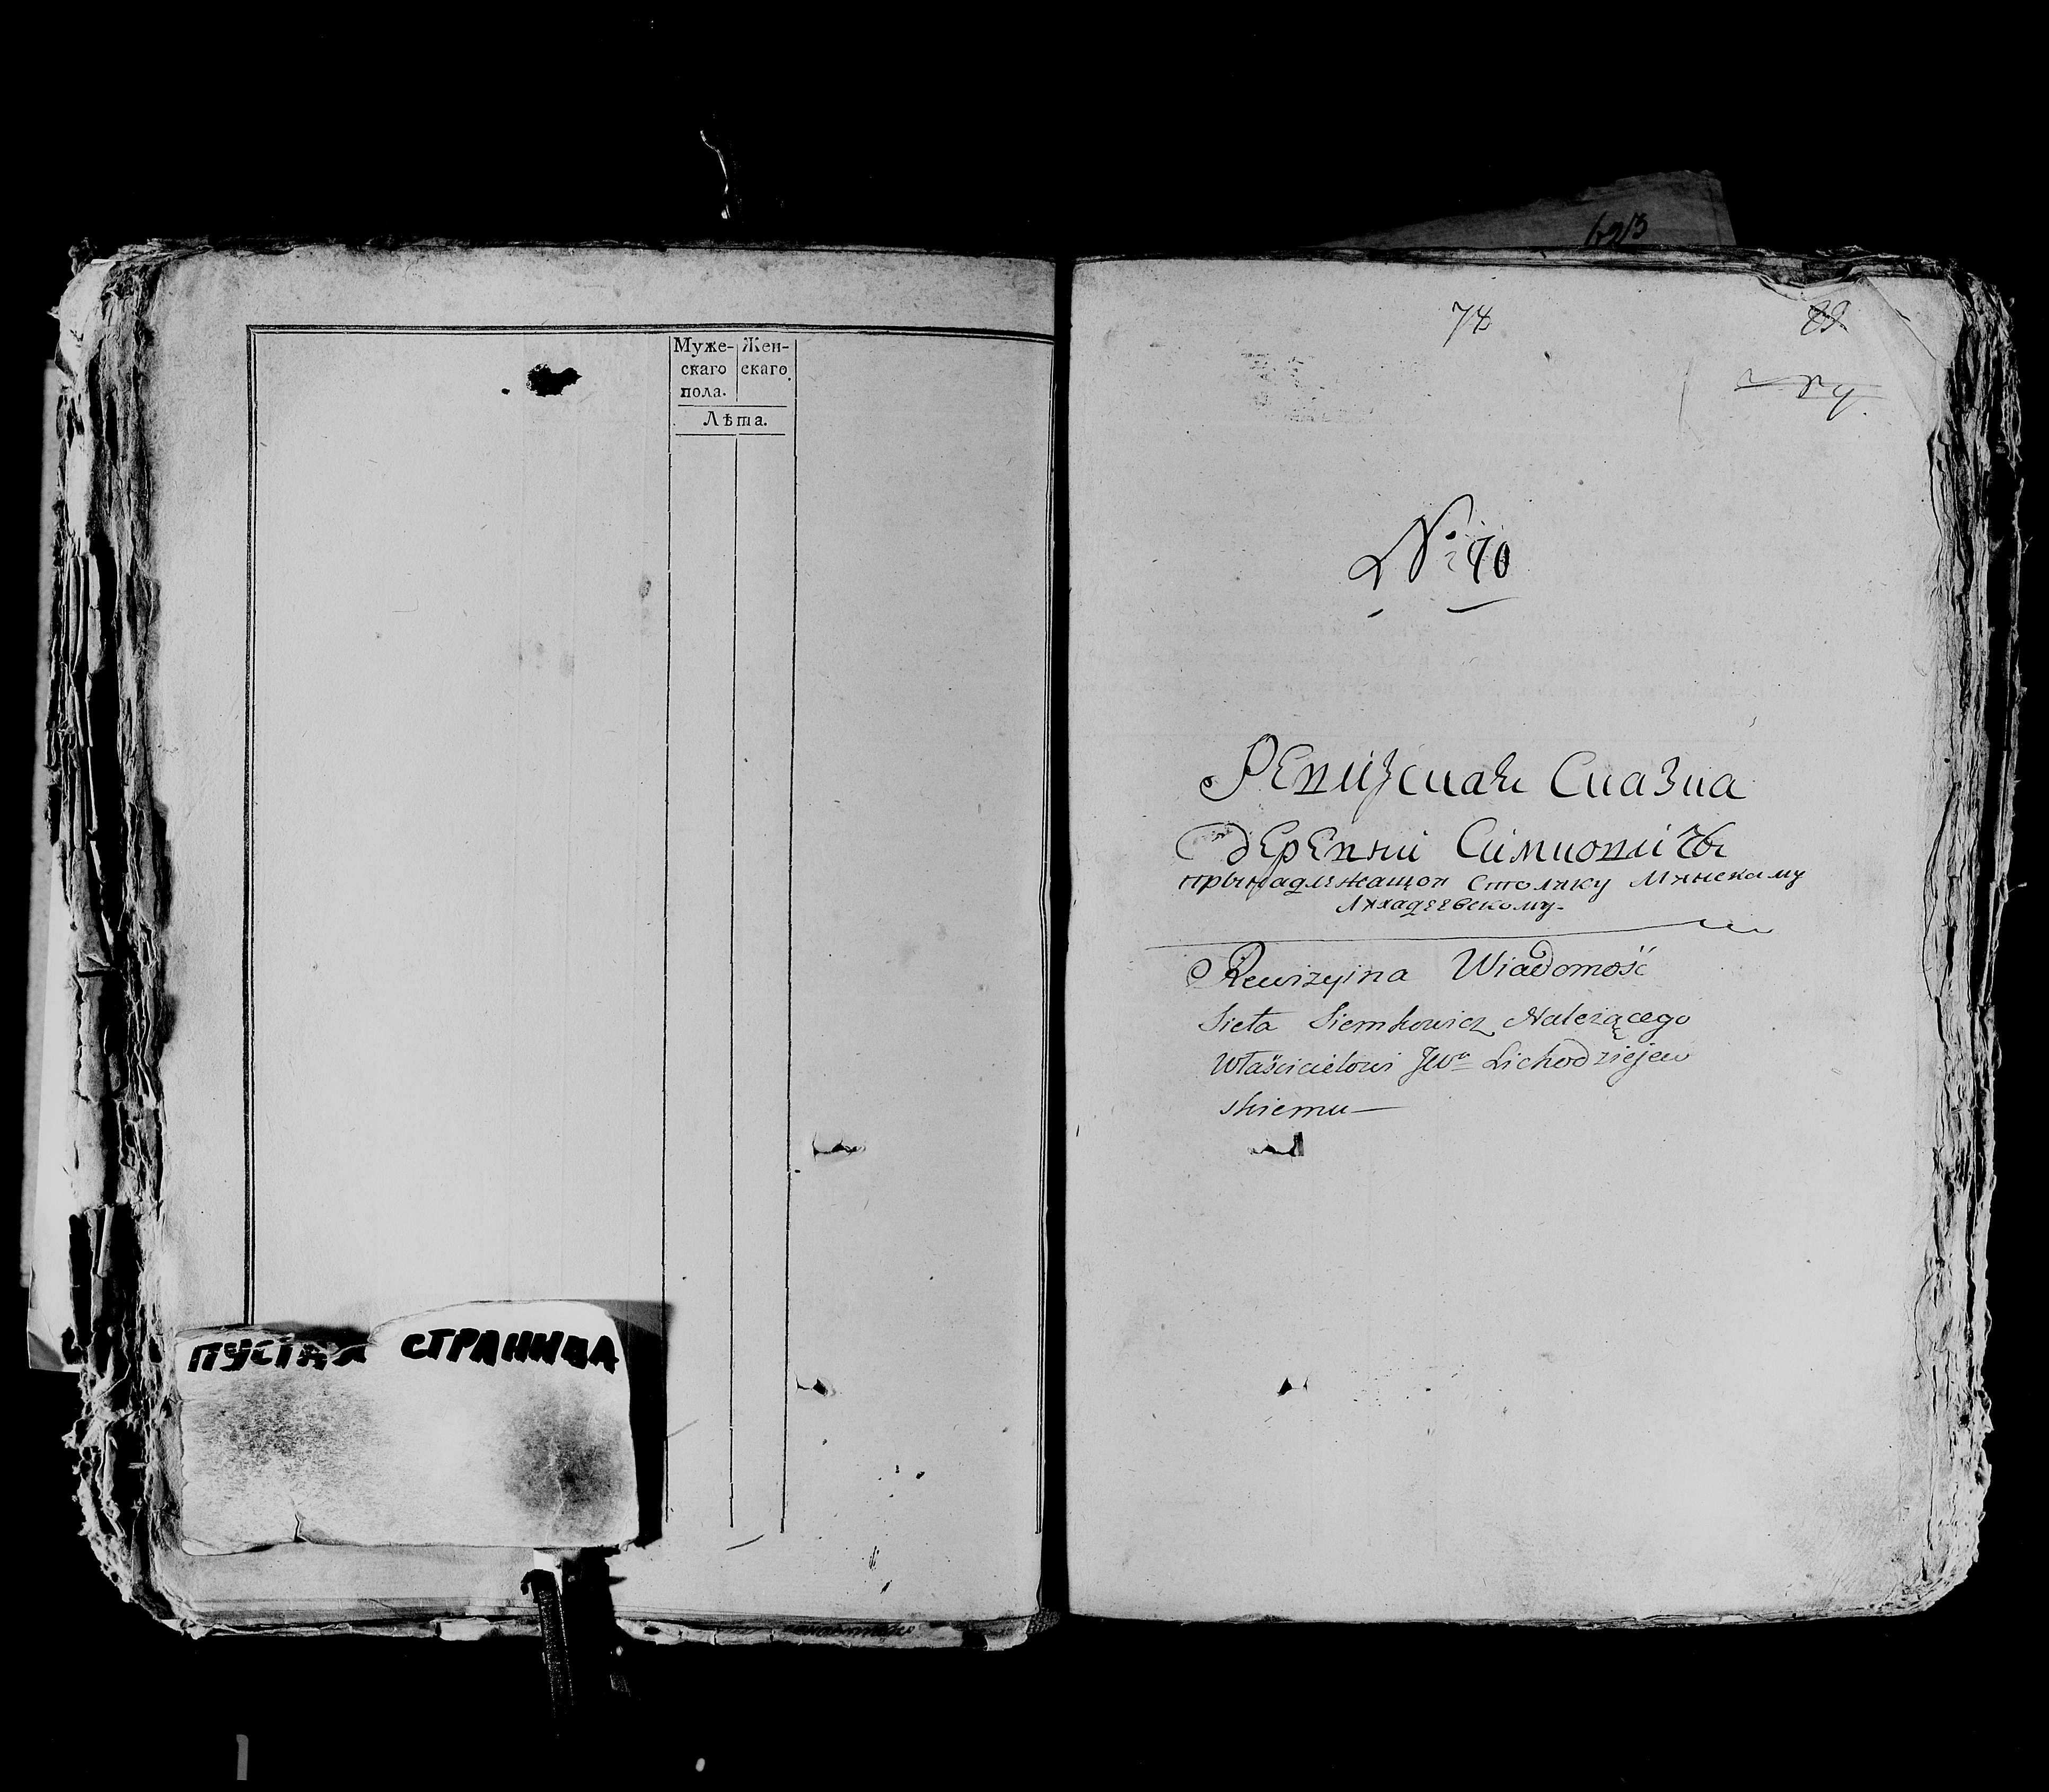 Муже- Жен-
скаго скаго
пола.
Лѣта.
ПУСТАЯ СТРАНИЦА
74
№ 70
Ревизская Сказка
деревни Симковичъ
прынадлежащой Столнку Минскаму
Лихадзеевскому.
Rewizyina Wiadomość
Sieła Siemkowicz Należącego
Właścicielowi JWu Lichodziejew
skiemu